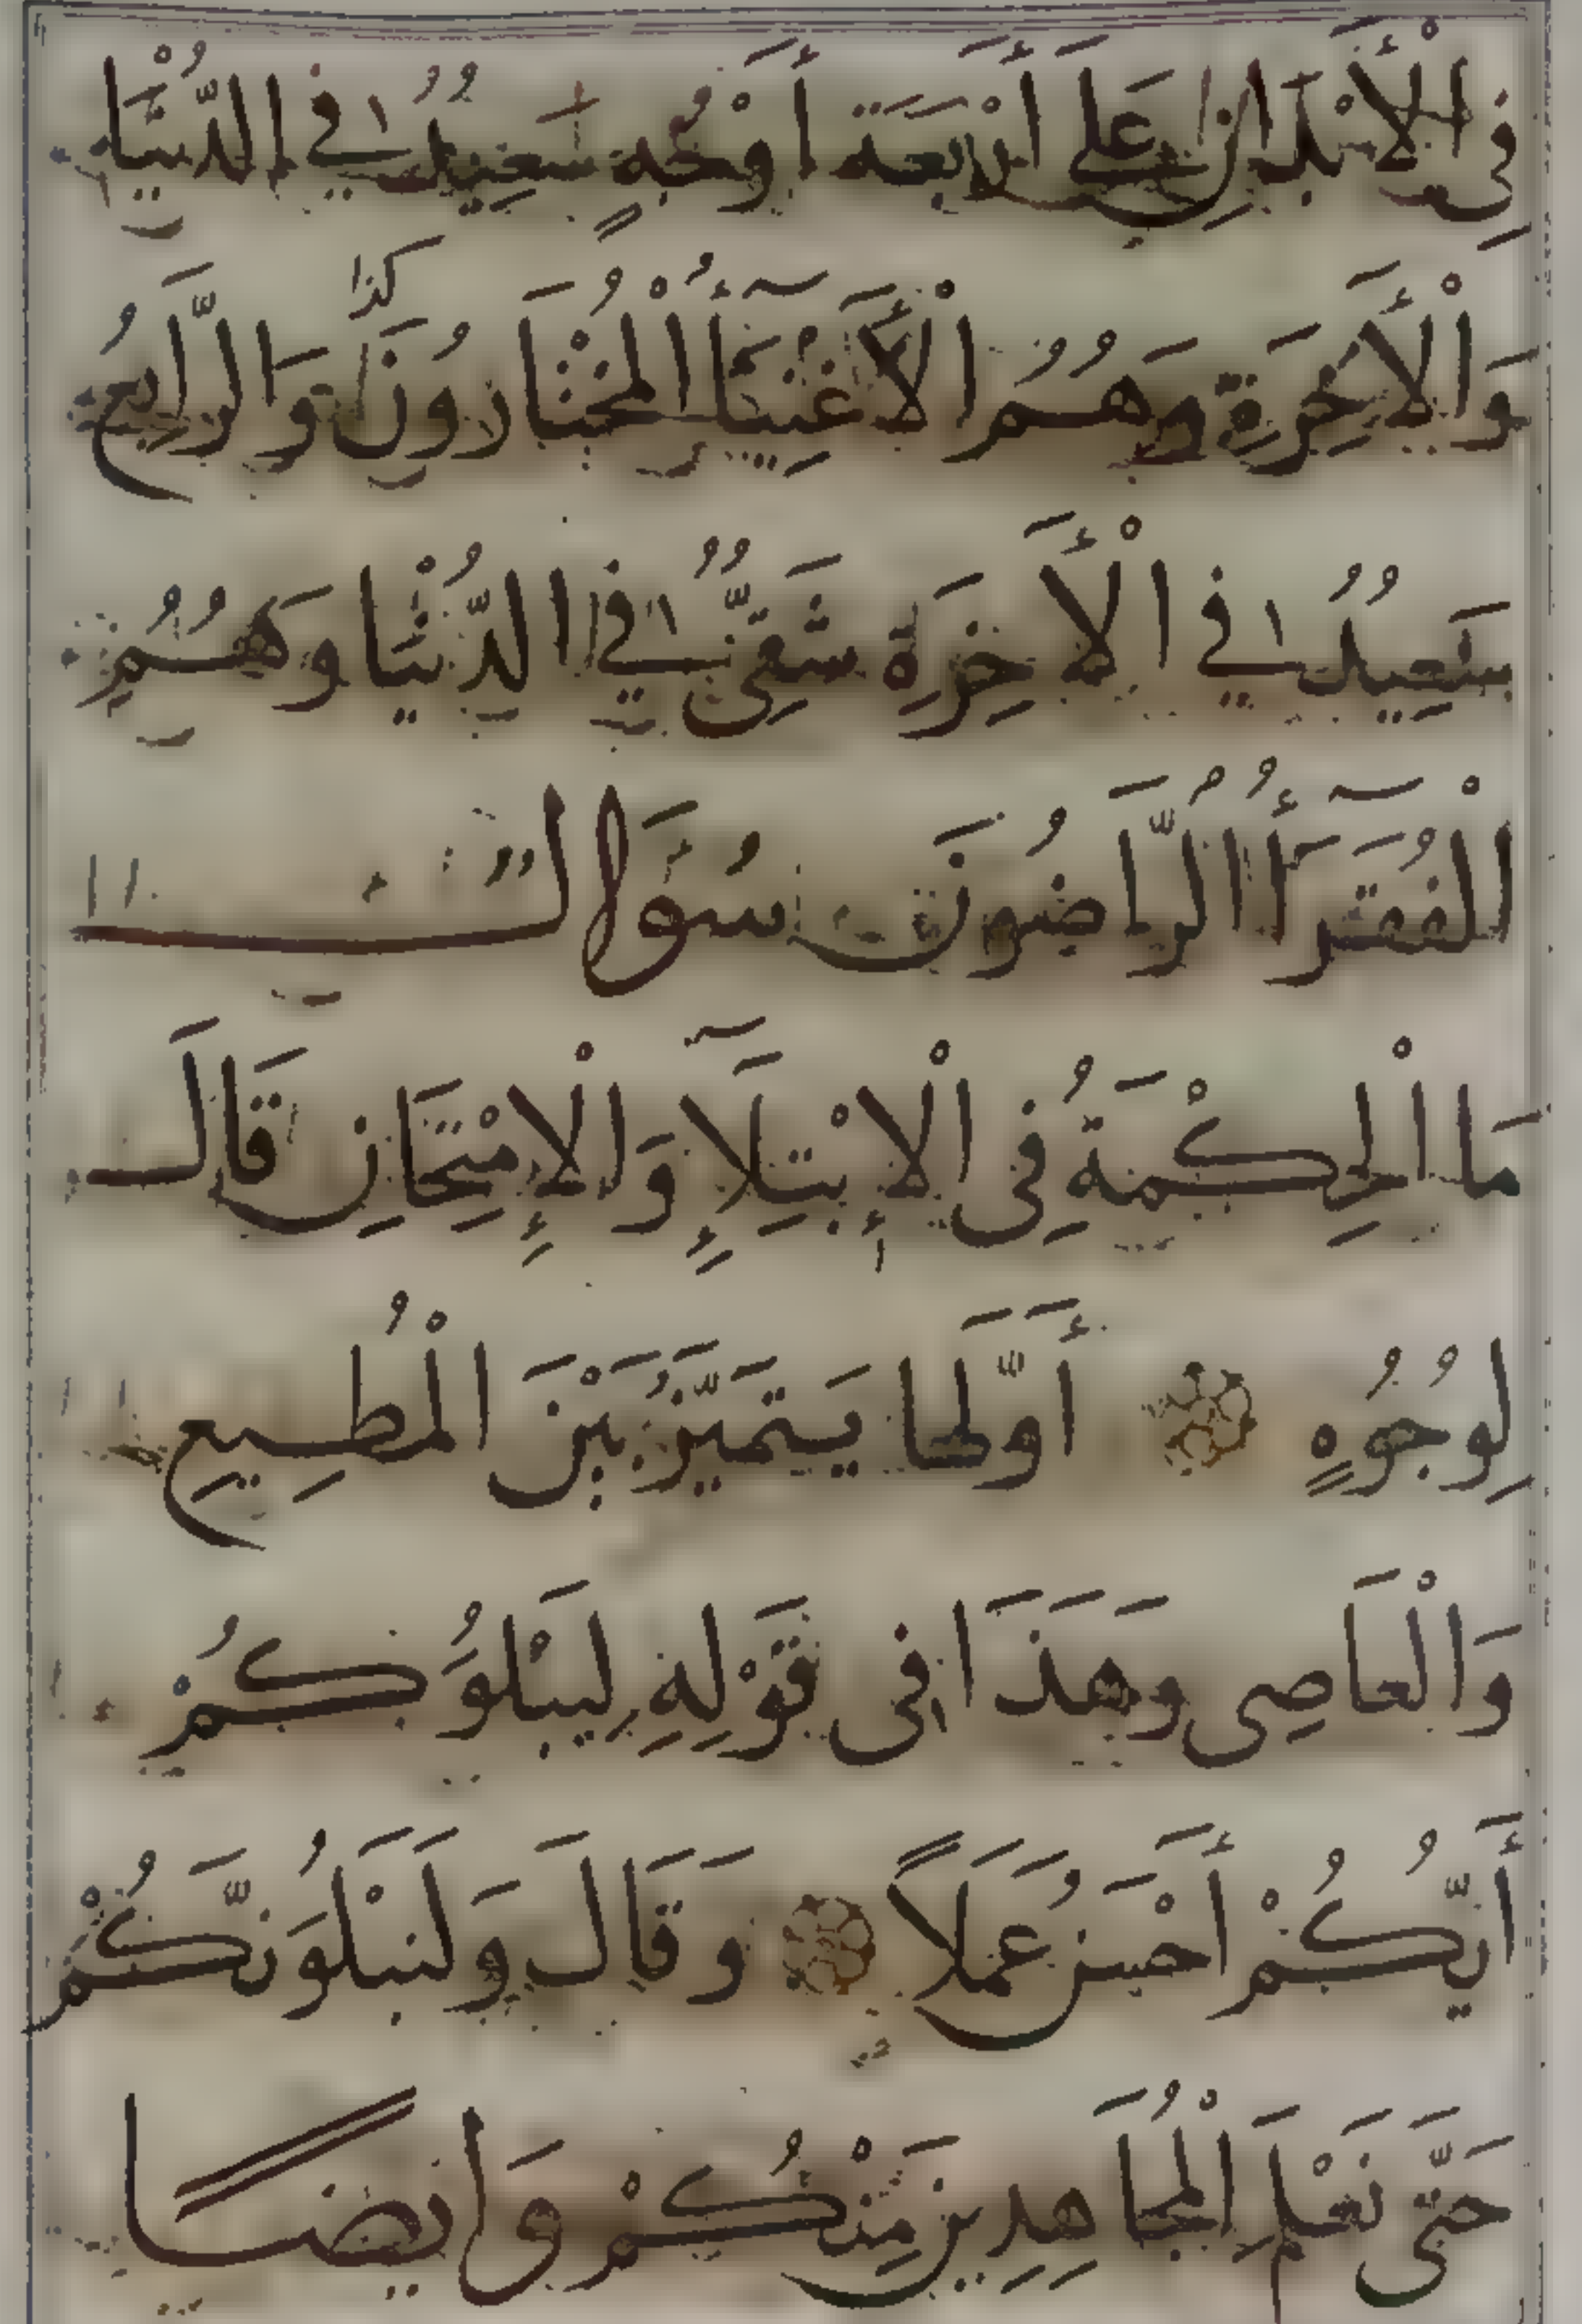 فِى الْأَبْدَانِ عَلَى أَرْبَعَةِ أَوْجُهٍ سَعِيدٌ فِي الدُّنْيَا
وَالْأَخِرَةِ وَهُمُ الْأَغْنِيَآءُ الْمُخْتَارُونَ كذا وَالرَّابِعُ
سَعِيدٌ فِي الْأَخِرَةِ شَقِىٌّ فِي الدُّنْيَا وَهُمُ
الْفُقَرَآءُ الرَّاضُونَ سُؤَالٌ
مَا الْحِكْمَةُ فِى الْإِبْتِلَآءِ وَالْإِمْتِحَانِ قَالَ
لِوُجُوهٍ أَوَّلُهَا يَتَمَيَّزُ بَيْنَ الْمُطِيعِ
وَالْعَاصِى وَهَذَا فِى قَوْلِهِ لِيَبْلُوَكُمْ
أَيُّكُمْ أَحْسَنُ عَمَلًا وَقَالَ وَلَنَبْلُوَنَّكُمْ
حَتَّى نَعْلَمَ الْمُجَاهِدِينَ مِنْكُمْ وَايضًا